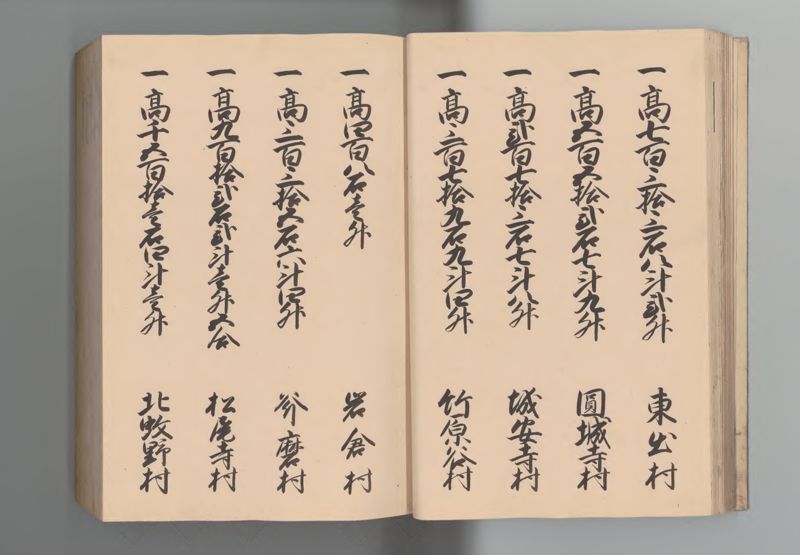 一 高七百三拾三石八斗弐升 東出村
一 高五百五拾弐石七斗九升 圓城寺村
一 高弐百七拾三石七斗八升 城安寺村
一 高三百七拾九石九斗四升 竹原谷村
一 高四百八石壱升 岩倉村
一 高三百三拾五石六斗四升 斧磨村
一 高九百拾弐石弐斗壱升五合 松尾寺村
一 高千五百拾壱石四斗壱升 北蚊野村